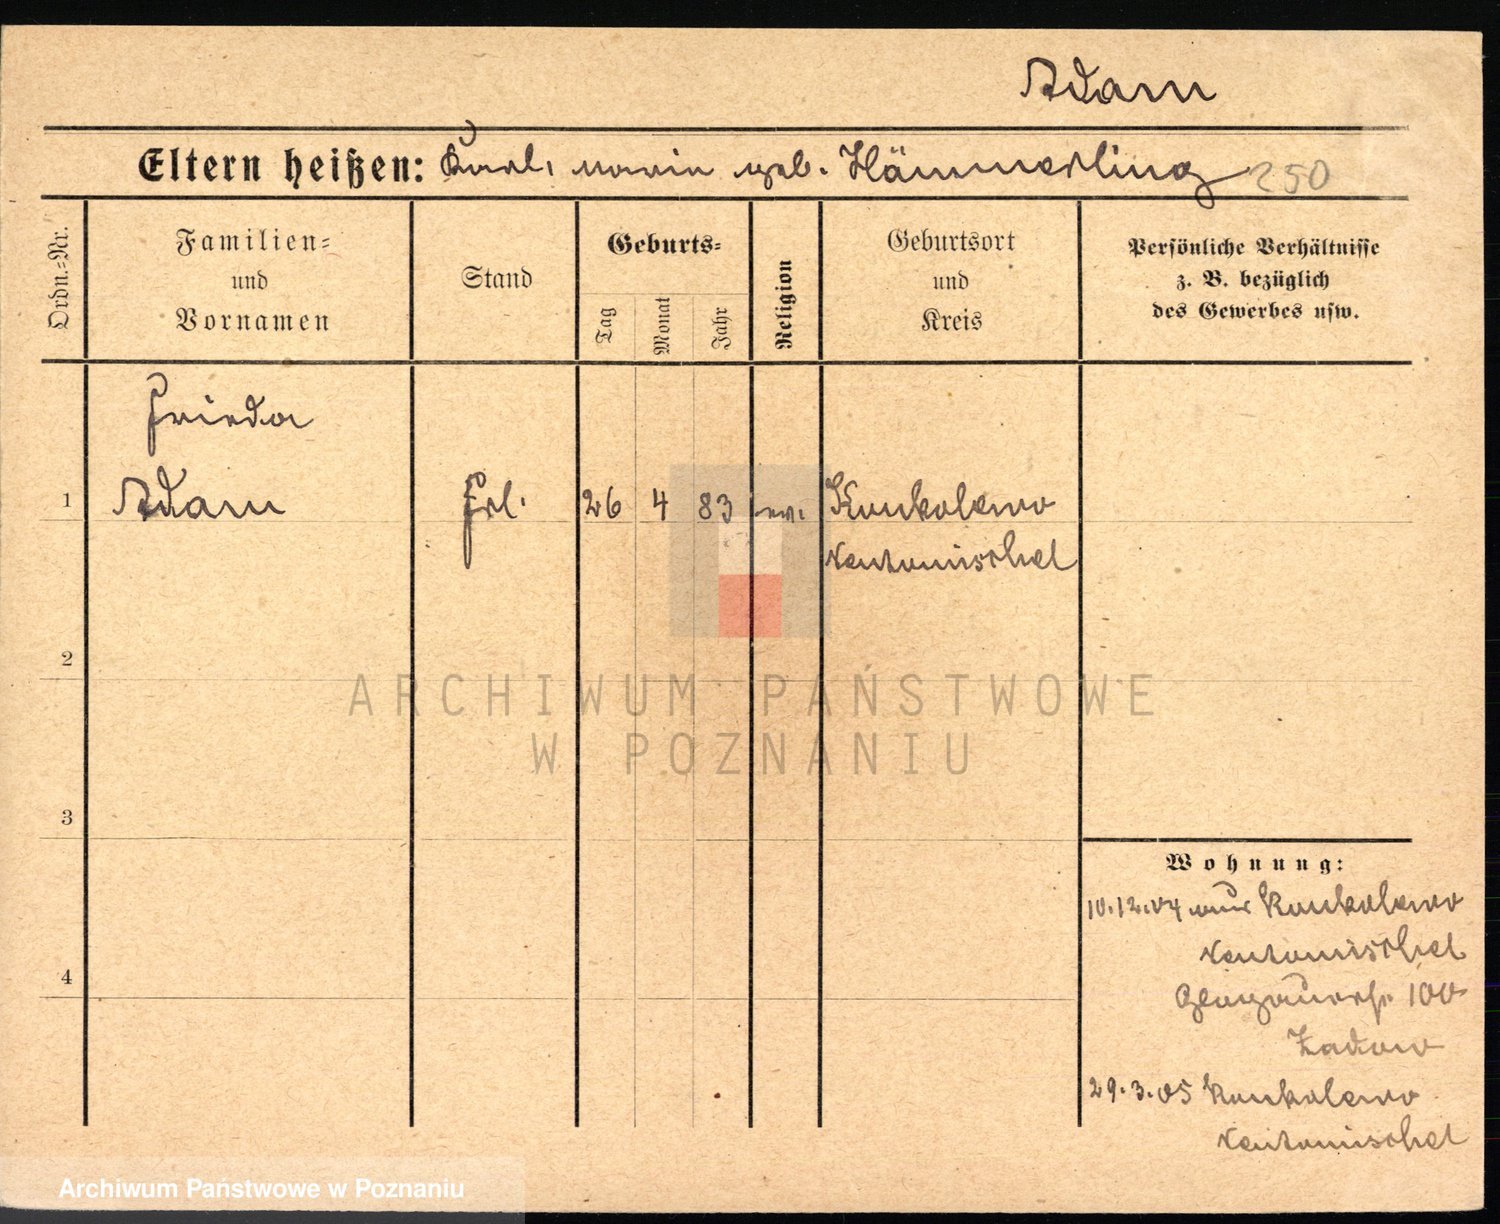 Adam
Eltern heißen: Karl, Marie geb. Hämmerling 250
Ordn.-Nr.
Familien- und Vornamen
Stand
Geburts-
Tag
Monat
Jahr
Religion
Geburtsort und Kreis
Persönliche Verhältnisse
z. B. bezüglich
des Gewerbes usw.
Frieda
1 Adam Frl. 26 4 83 ev. Konkolewo
Neutomischel
2
3
4
Wohnung:
10.12.04 aus Konkolewo
Neutomischel
Glogauerstr. 100
29.3.05 Konkolewo
Neutomischel
ARCHIWUM PAŃSTWOWE
W POZNANIU
Archiwum Państwowe w Poznaniu